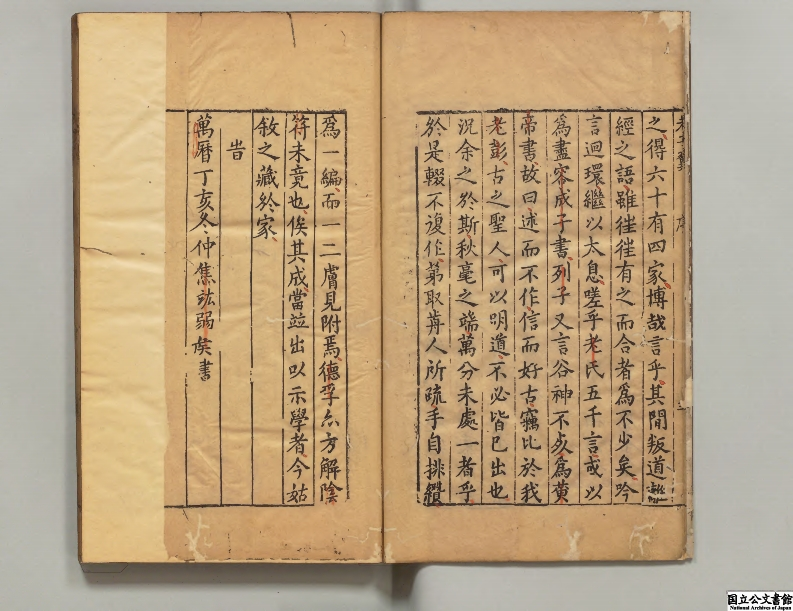 老子翼 序
之得六十有四家博哉言乎其間叛道離
經之語雖徃徃有之而合者爲不少矣吟
言迴環繼以太息嗟乎老氏五千言或以
爲盡容成子書列子又言谷神不死爲黄
帝書故曰述而不作信而好古竊比於我
老彭古之聖人可以明道不必皆巳出也
況余之於斯秋毫之端萬分未處一者乎
於是輟不復作苐取前人所疏手自排纘
爲一編而一二膚見附焉德孚亦方解陰
符未竟也俟其成當竝出以示學者今姑
敘之藏於家
旹
萬曆丁亥冬仲焦竑弱矦書
国立公文書館
National Archives of Japan